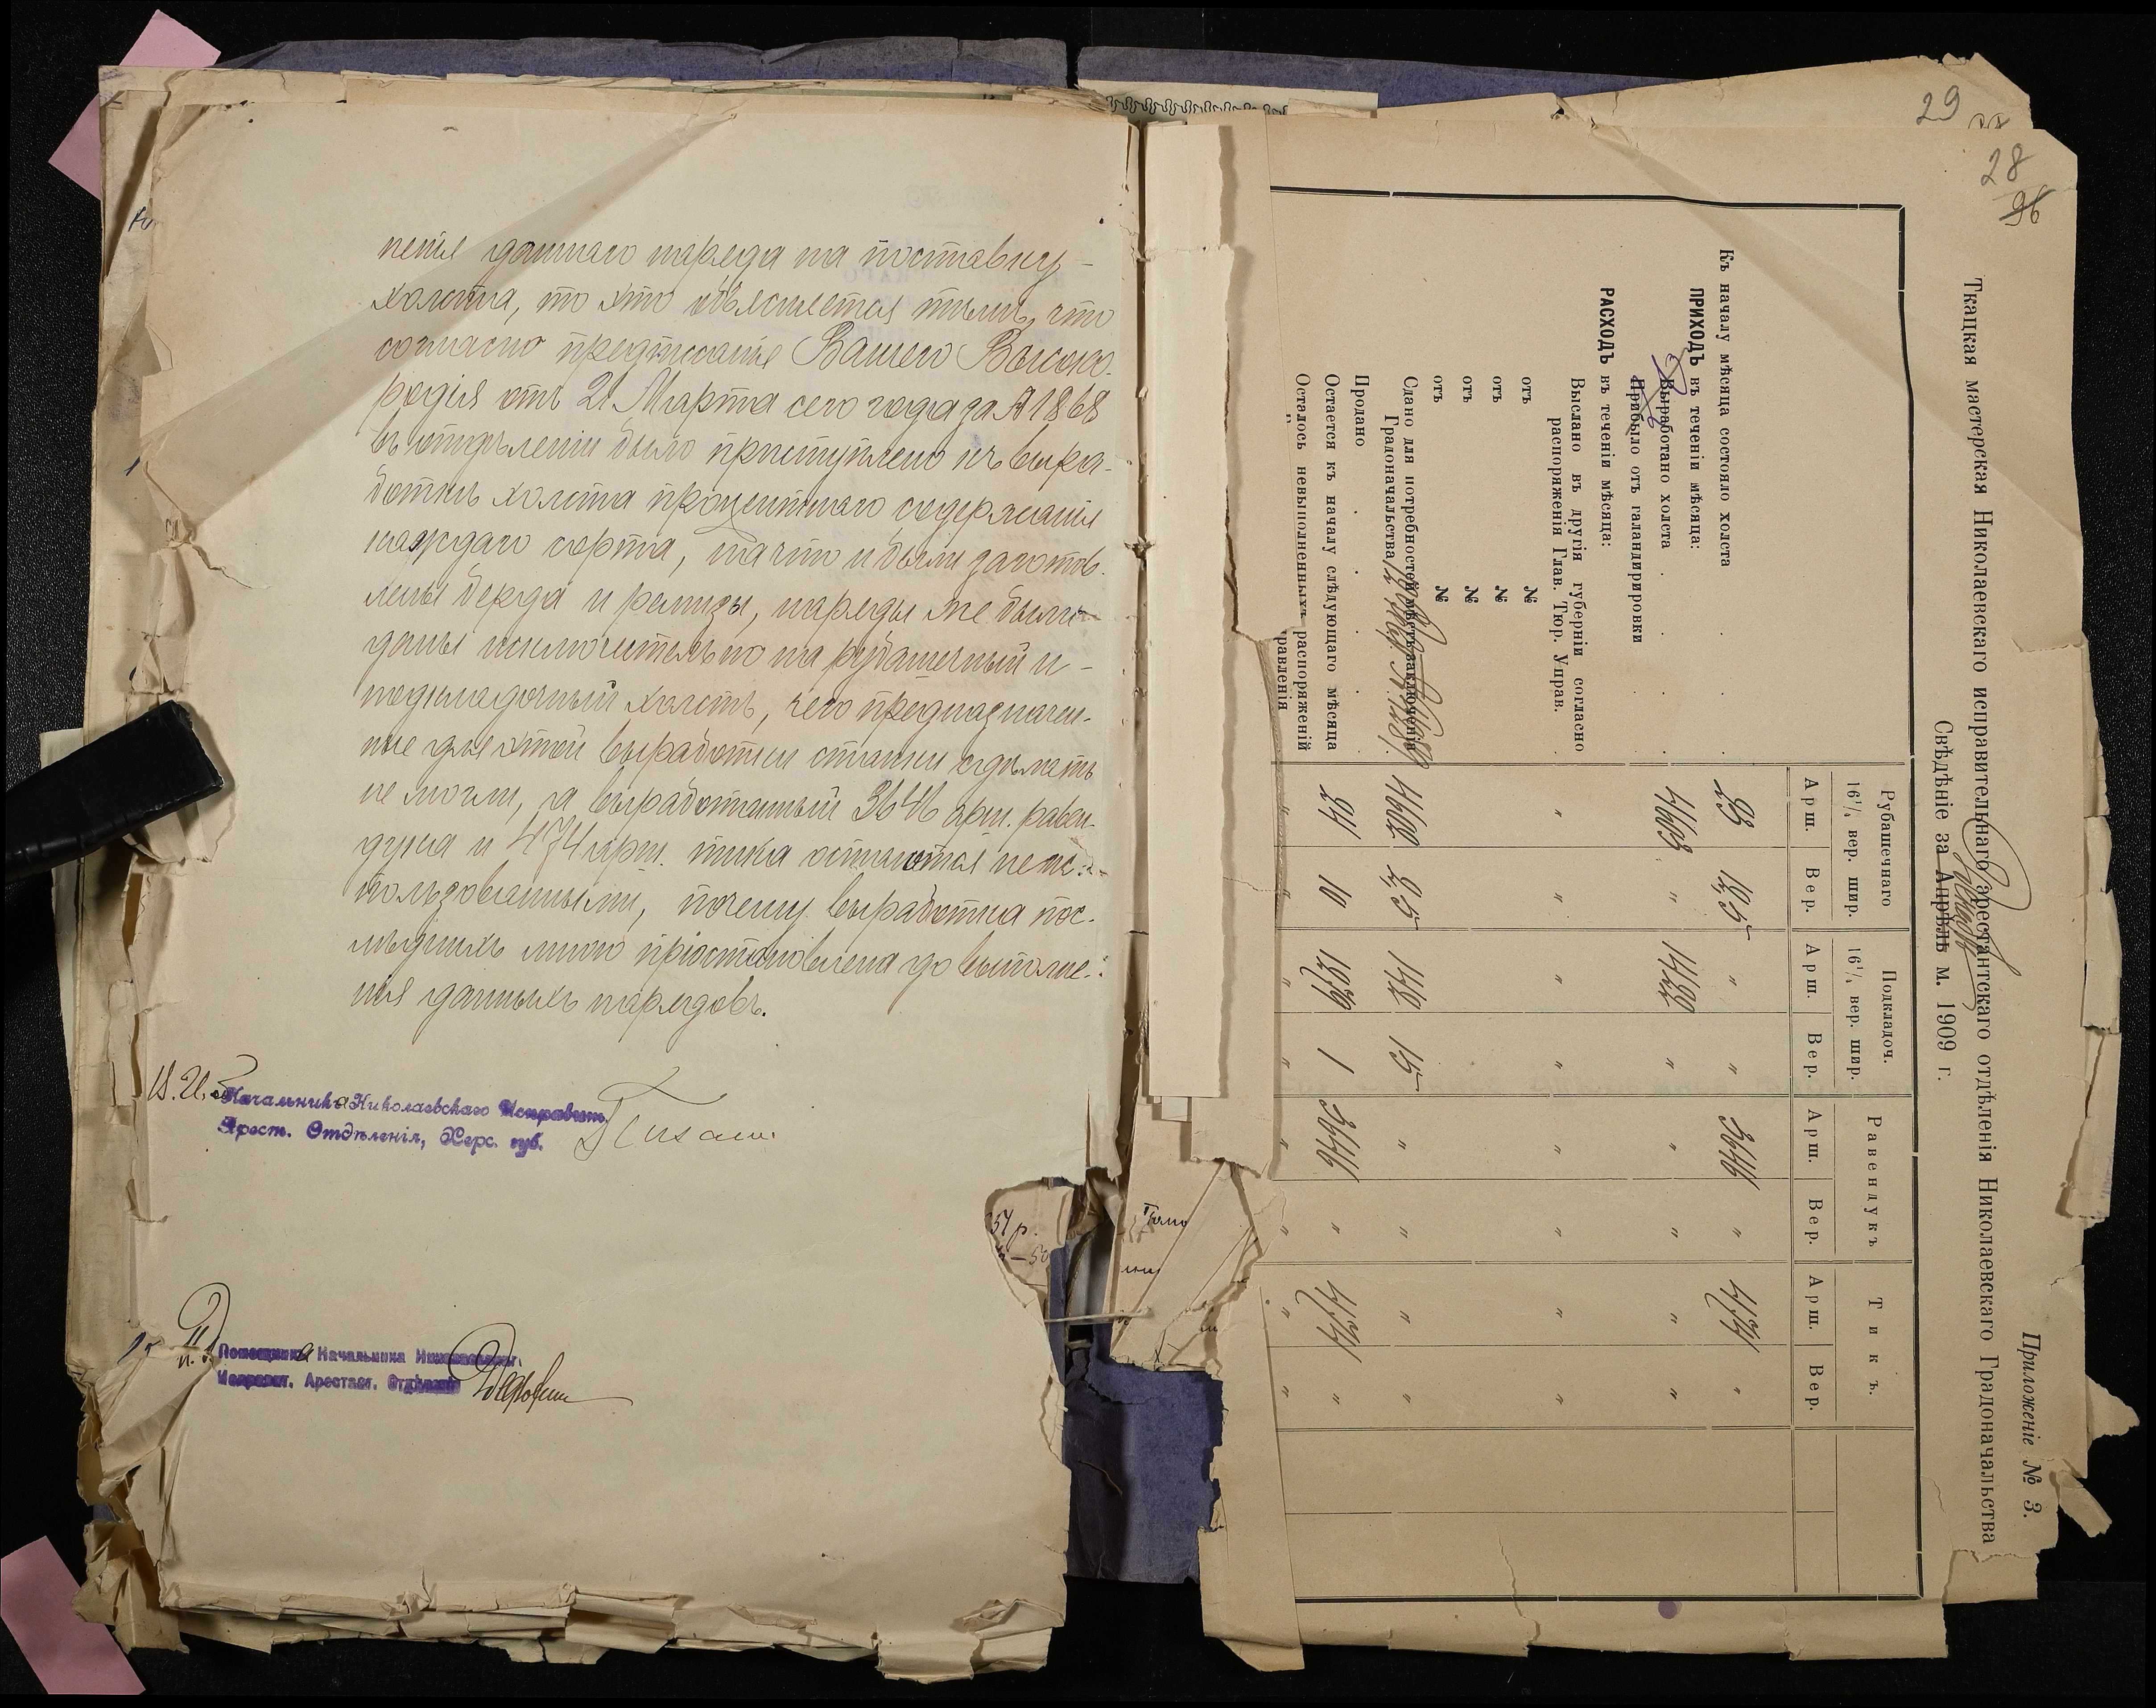 ненія даннаго наряда на поставку
холста, то это объясняется тѣмъ, что
согласно предписанія Вашего Высоко-
родія отъ 21 Марта сего года за № 1868
въ отдѣленіи было приступлено къ выра-
боткѣ холста процентнаго содержанія
каждаго сорта, на что и были заготов-
лены берда и ремизы, наряды же были
даны исключительно на рубашечный и
подкладочный холстъ, чего предназначен-
ные для этой выработки станки сдѣлать
не могли, а выработанный 3646 арш. равен-
дука и 474 арш. тика остаются неис-
пользованными, почему выработка пос-
лѣднихъ мною пріостановлена до выполне-
нія данныхъ нарядовъ.
И. И. Начальника Николаевскаго Исправит.
Арест. Отдѣленія, Херс. губ.
Помощника Начальника Николаевск.
Исправит. Арестант. Отдѣленія
54 р.
29
28
96
Приложеніе № 3.
Ткацкая мастерская Николаевскаго исправительнаго арестантскаго отдѣленія Николаевскаго Градоначальства
Свѣдѣніе за Апрѣль м. 1909 г.
Рубашечнаго 16¹/₂ вер. шир.
Подкладоч. 16¹/₂ вер. шир.
Равендукъ
Тикъ.
Арш. Вер. Арш. Вер. Арш. Вер. Арш. Вер.
Къ началу мѣсяца состояло холста " " 3646 " 474 "
ПРИХОДЪ въ теченіи мѣсяца:
Выработано холста " " " " " "
Прибыло отъ галандрировки
РАСХОДЪ въ теченіи мѣсяца:
Выслано въ другія губерніи согласно
распоряженія Глав. Тюр. Управ. " " " " " " " "
отъ №
отъ №
отъ №
отъ №
Сдано для потребностей мѣстъ заключенія
Градоначальства 15 " " " "
Продано
Остается къ началу слѣдующаго мѣсяца 24 10 1 3646 " 474 "
Осталось невыполненныхъ распоряженій
равленія " " " " " " " "